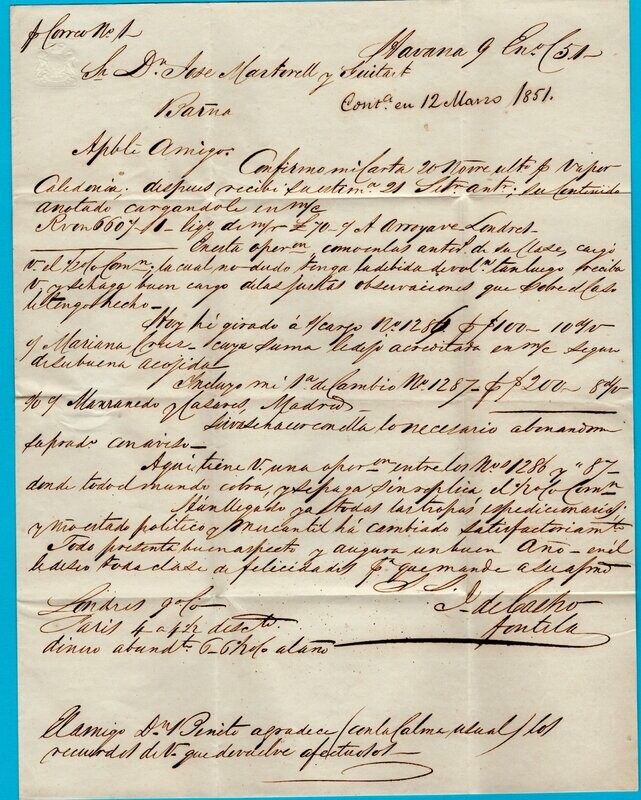 p Correo No. 1
Havana 9 Eno. 51
Sr. Dn. Jose Martorell y Guitart
Contda. en 12 Marzo 1851.
Barna
Apble Amigo.
Confirmo mi carta 20 Novre ulto p Vapor
Caledonia; despues recibí su estimª 21 Setre antr; su contenido
anotado cargandole en m/c
Rvon 6607-11 liqº de m/r £70 y A. Arroyave Londres
En esta oper.on como en las antrs. de su clase, cargó
V. el ½ % Comn; la cual no dudo tenga la debida devoln. tan luego reciba
V. y se haga buen cargo de las justas observaciones que sobre el caso
le tengo hecho
Hoy hé girado á s/cargo No. 1286 p $100- 10
y Mariana Cruz cuya suma le dejo acreditada en m/c seguro
di su buena acojida
Incluyo mi 1ª de Cambio No. 1287- p $200- 8
Manzanedo y Casares, Madrid
Sirvase hacer con ella lo necesario abonandom
con aviso
Aqui tiene V. una oper.on entre los Nos 1286 y " 87-
donde todo el mundo cobra, y se paga sin replica, el ½ % Comn
Han llegado ya todas las tropas espedicionarias;
y nro estado politico y mercantil há cambiado satisfactoriamte
Todo presenta buen aspecto y augura un buen Año- en el
le deseo toda clase de felicidades pª que mande a su afmo
S. S.
J. de Castro
Fontela
Londres 9 %
Paris 4 a 4½ discto
dinero abundte 6- 6½ % al año
El amigo Dn. Benito agradece (con la calma usual) los
recuerdos de V. que devuelve afectuosos